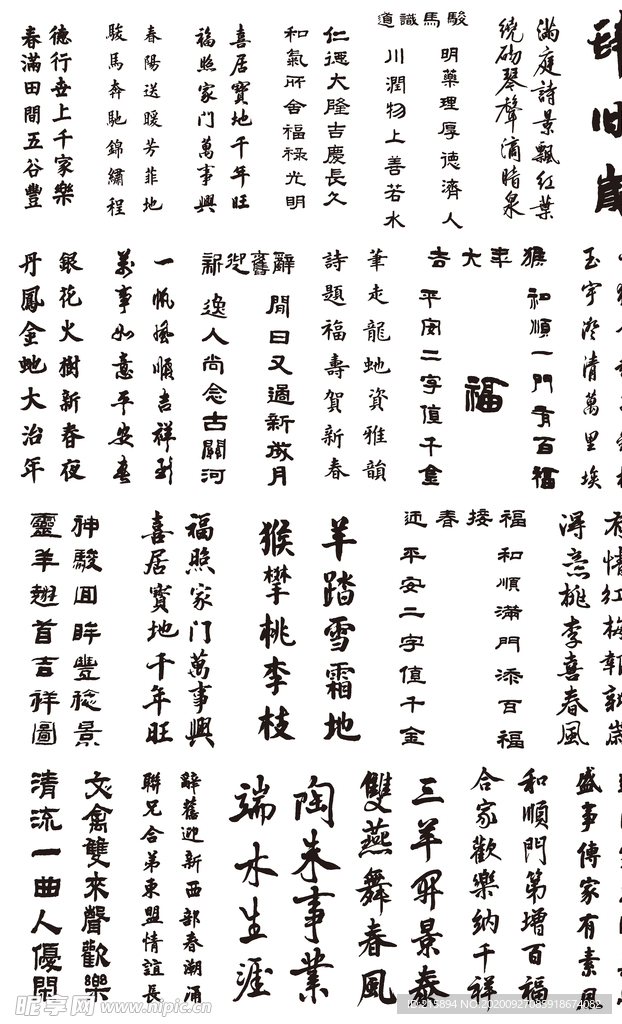 肆旧岁
滿庭詩景飄紅葉
繞砌琴聲滴暗泉
道識馬駿
明藥理厚德濟人
川潤物上善若水
仁德大隆吉慶長久
和氣所舍福禄光明
喜居寳地千年旺
福照家门萬事興
春陽送暖芳菲地
駿馬奔馳錦繡程
德行世上千家樂
春滿田間五谷豐
玉宇澄清萬里埃
吉大年猴
和順一門有百福
平安二字值千金
福
筆走龍虵資雅韻
詩題福壽賀新春
新迎舊辭
閒日又過新歲月
逸人尚念古關河
一帆風順吉祥到
萬事如意平安春
銀花火樹新春夜
丹鳳金虵大治年
春情红梅報新歲
得意桃李喜春風
迊春接福
和順滿門添百福
平安二字值千金
羊踏雪霜地
猴攀桃李枝
福照家门萬事興
喜居寳地千年旺
神駿回眸豐稔景
靈羊翹首吉祥圖
盛事傳家有素風
和順門第增百福
合家歡樂納千祥
三羊開景泰
雙燕舞春風
陶朱事業
端木生涯
辭舊迎新西部春潮涌
聯兄合弟東盟情誼長
文禽雙來聲歡樂
清流一曲人優閑
昵享网 www.nipic.cn